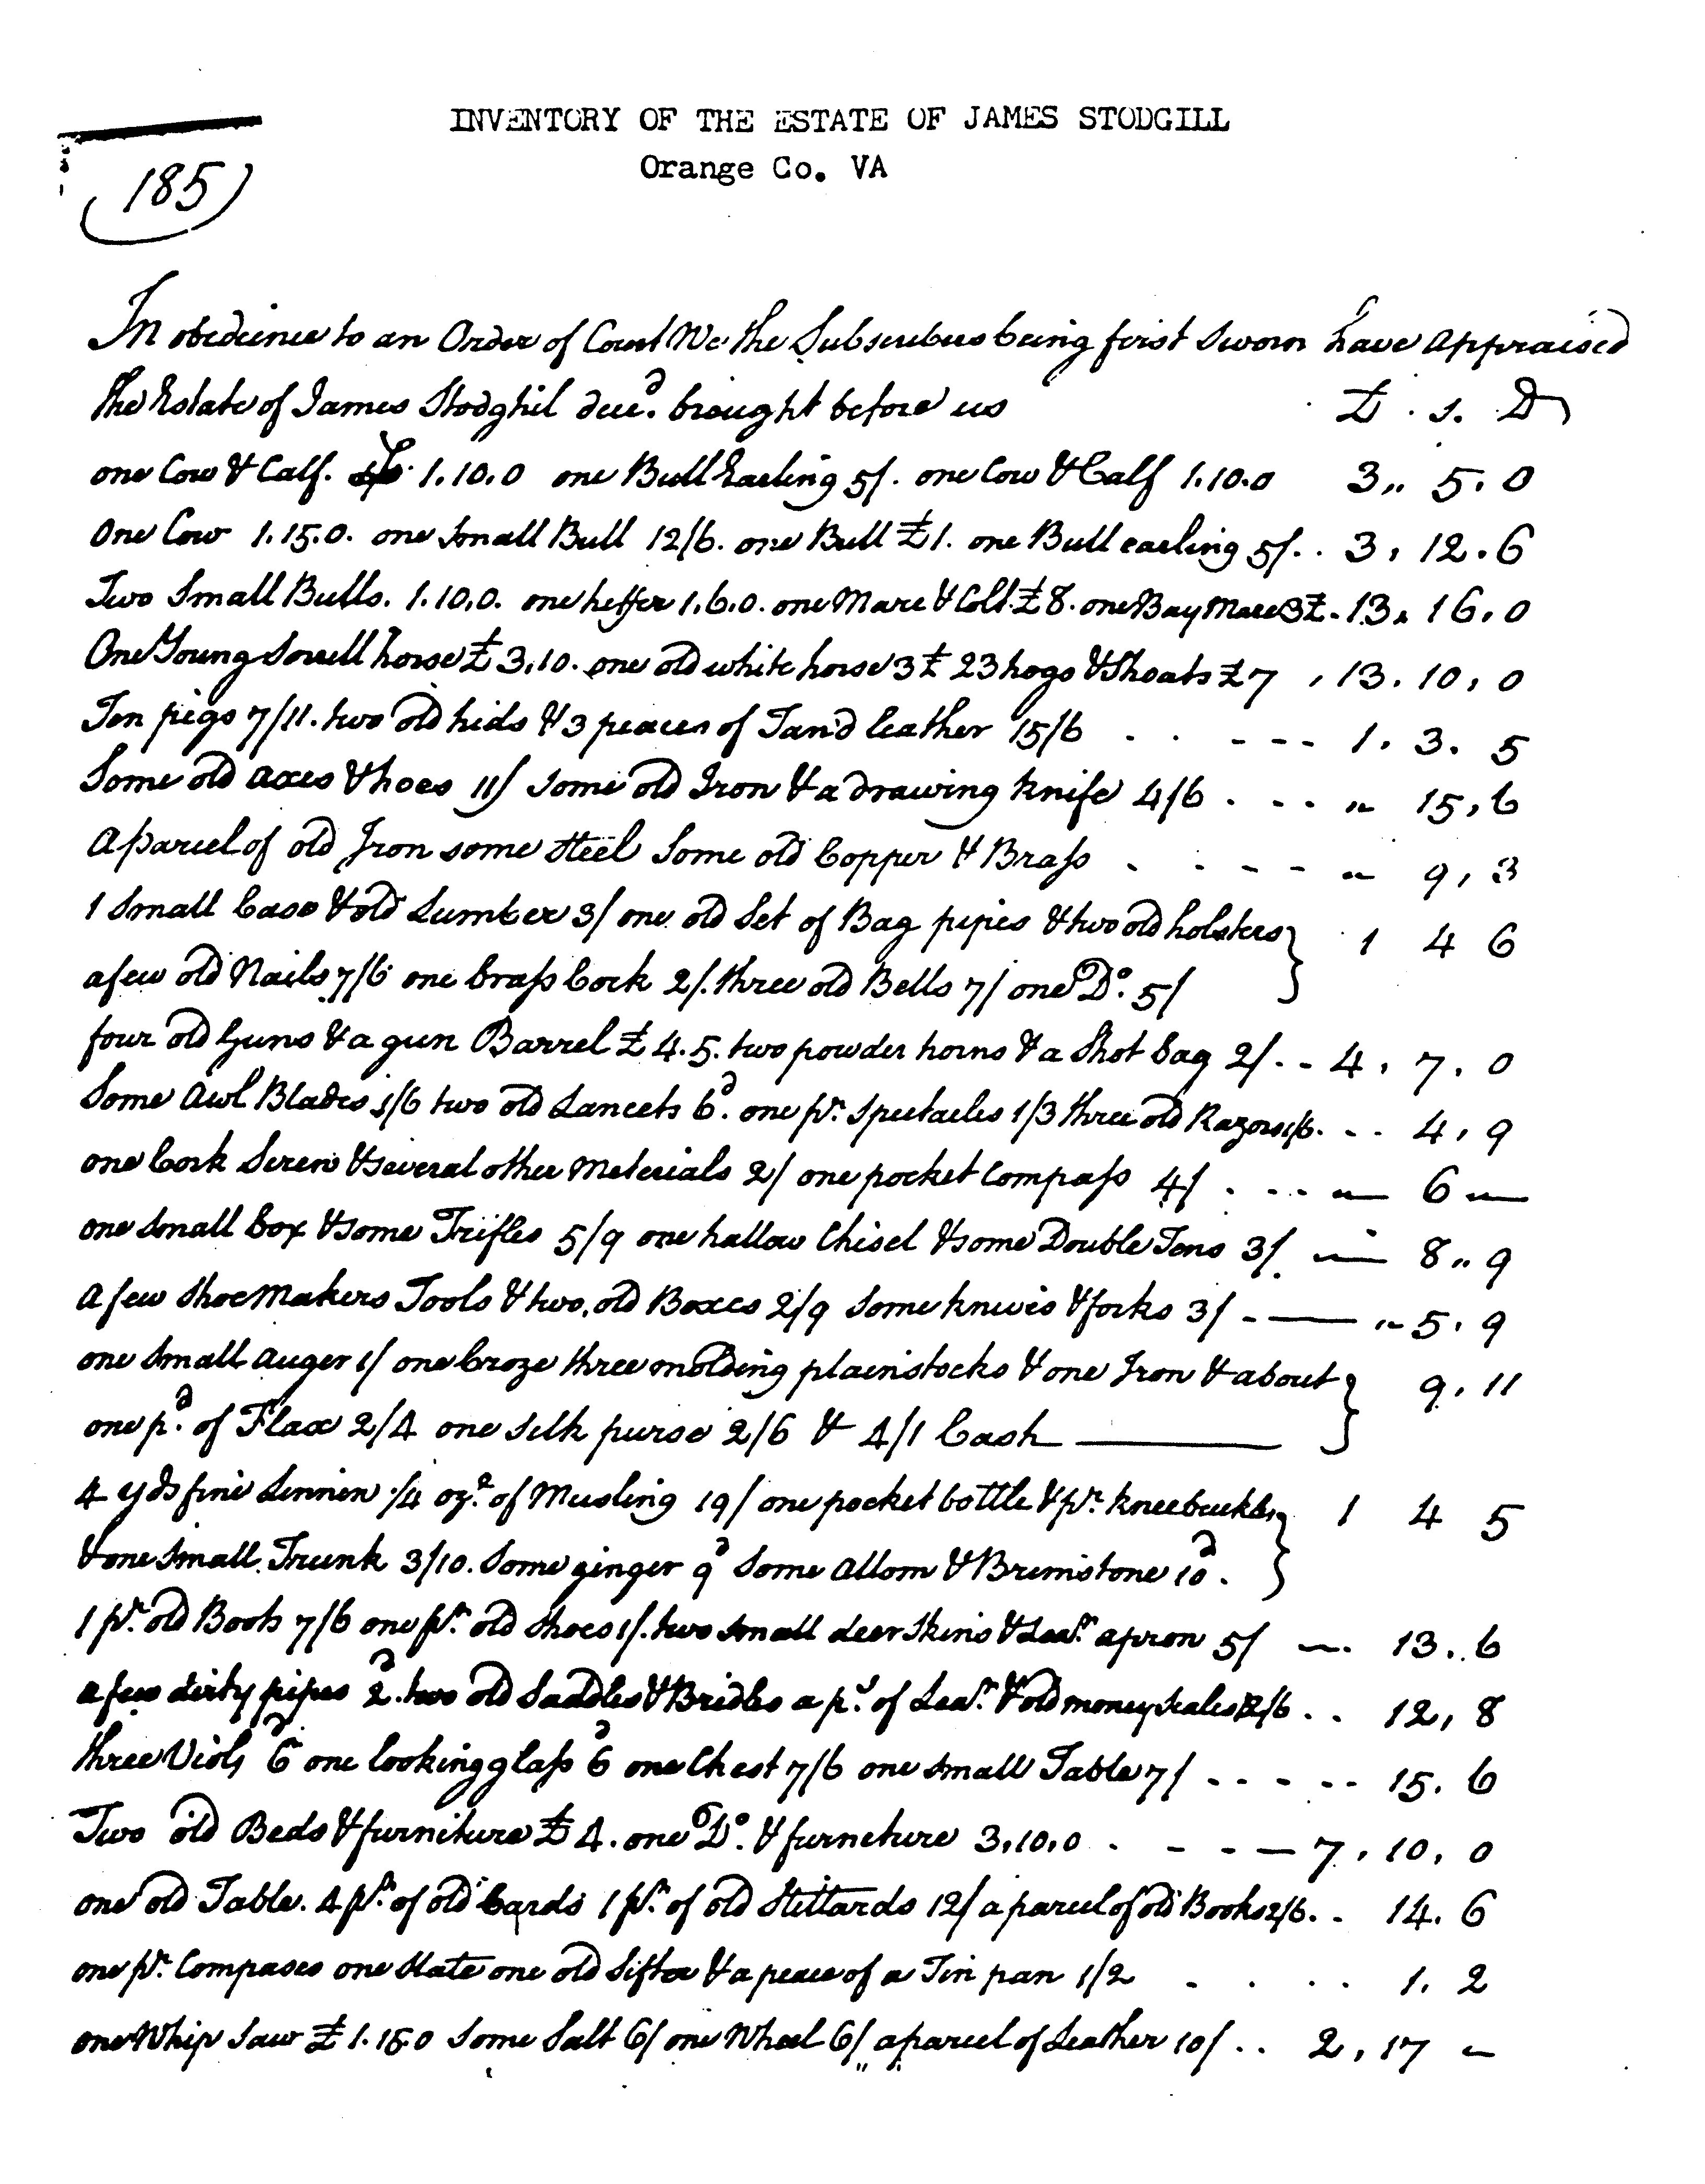 INVENTORY OF THE ESTATE OF JAMES STODGILL
Orange Co. VA
185)
In obedience to an Order of Court We the Subscribers being first sworn have appraised
the Estate of James Stodghil decd. brought before us £ . s. D
one Cow & Calf. 1.10.0 one Bull Earling 5/. one Cow & Calf 1.10.0 3,, 5.0
One Cow 1.15.0. one small Bull 12/6. one Bull £1. one Bull earling 5/. . 3, 12.6
Two Small Bulls. 1.10.0. one heffer 1.6.0. one Mare & Colt £8. one Bay Mare 3£ - 13, 16,0
One Young Sorrell horse £3,10. one old white horse 3£ 23 hogs & Shoats £7 , 13. 10, 0
Ten pigs 7/11. two old hids & 3 peaces of Tan'd leather 15/6 . . - - - - 1. 3. 5
Some old axes & hoes 11/ some old Iron & a drawing knife 4/6 . - - „ 15,6
a parcel of old Iron some steel some old Copper & Brass . . - - - „ 9,3
1 Small Case & old Lumber 3/ one old Set of Bag pipes & two old holsters } 1 4 6
a few old Nails 7/6 one brass Cock 2/. three old Bells 7/ one Do. 5/
four old Guns & a gun Barrel £4.5. two powder horns & a Shot bag 2/. - 4, 7. 0
Some Awl Blades 1/6 two old Lancets 6d. one pr. spectacles 1/3 three old Razors 1/6. - - 4, 9
one Cork Screw & several other Meterials 2/ one pocket Compass 4/ . - - - „ — 6 „ —
one small box & some Trifles 5/9 one hallow Chisel & some Double Tens 3/ — 8 ,, 9
a few shoe Makers Tools & two old Boxes 2/9 some knives & forks 3/ - — „ 5. 9
one small auger 1/ one Croze three molding plainstocks & one Iron & about } 9. 11
one pd. of Flax 2/4 one silk purse 2/6 & 4/1 Cash —
4 yds fine Linnen 1/4 ozs. of Musling 19/ one pocket bottle & pr. kneebuckles } 1 4 5
& one small Trunk 3/10. some ginger 9d some Allom & Brimstone 10d.
1 pr. old Boots 7/6 one pr. old shoes 1/. two small deer skins & Lear. apron 5/ —. 13. 6
a few dirty pipes 2d. two old Saddles & Bridles a ps. of Lear. & old money scales 12/6 . . 12, 8
three Viols 6d one looking glass 6d one Chest 7/6 one small Table 7/ - - - - - 15. 6
Two old Beds & furniture £4. one Do. & furneture 3,10,0 . - - - — 7, 10, 0
one old Table. 4 pr. of old Cards 1 pr. of old Stittards 12/ a parcel of old Books 2/6. . 14. 6
one pr. Compases one slate one old sifter & a peace of a Tin pan 1/2 . . . . 1. 2
one Whip saw £1.15.0 some Salt 6/ one Wheel 6/ a parcel of Leather 10/ . . 2, 17 —